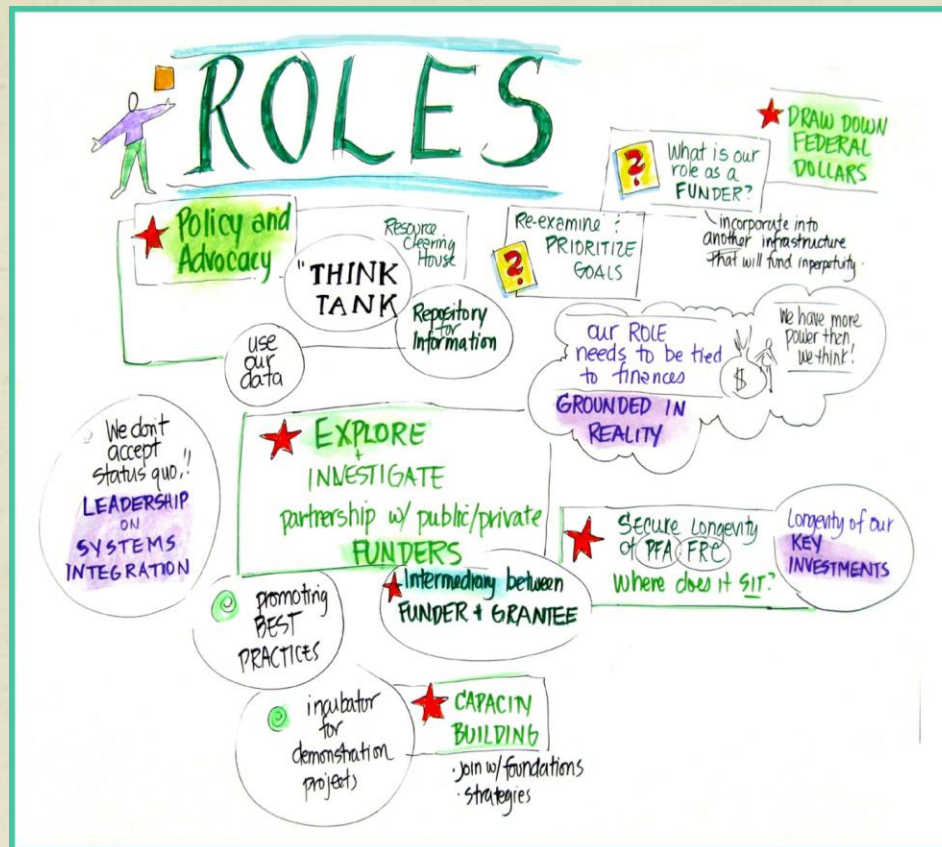 ROLES
DRAW DOWN
FEDERAL
DOLLARS
?
What is our
role as a
FUNDER?
incorporate into
another infrastructure
that will fund inperpetuity.
Policy and
Advocacy
Resource
Clearing
House
"THINK
TANK
Repository
for
Information
use
our
data
?
Re-examine :
PRIORITIZE
GOALS
our ROLE
needs to be tied
to finances
GROUNDED IN
REALITY
$
We have more
power then
we think!
We don't
accept
status quo,!!
LEADERSHIP
ON
SYSTEMS
INTEGRATION
EXPLORE
+
INVESTIGATE
partnership w/ public/private
FUNDERS
Intermediary between
FUNDER + GRANTEE
Secure Longevity
of PFA FRC
Where does it SIT?
Longevity of our
KEY
INVESTMENTS
promoting
BEST
PRACTICES
incubator
for
demonstration
projects
CAPACITY
BUILDING
· Join w/ foundations
· strategies